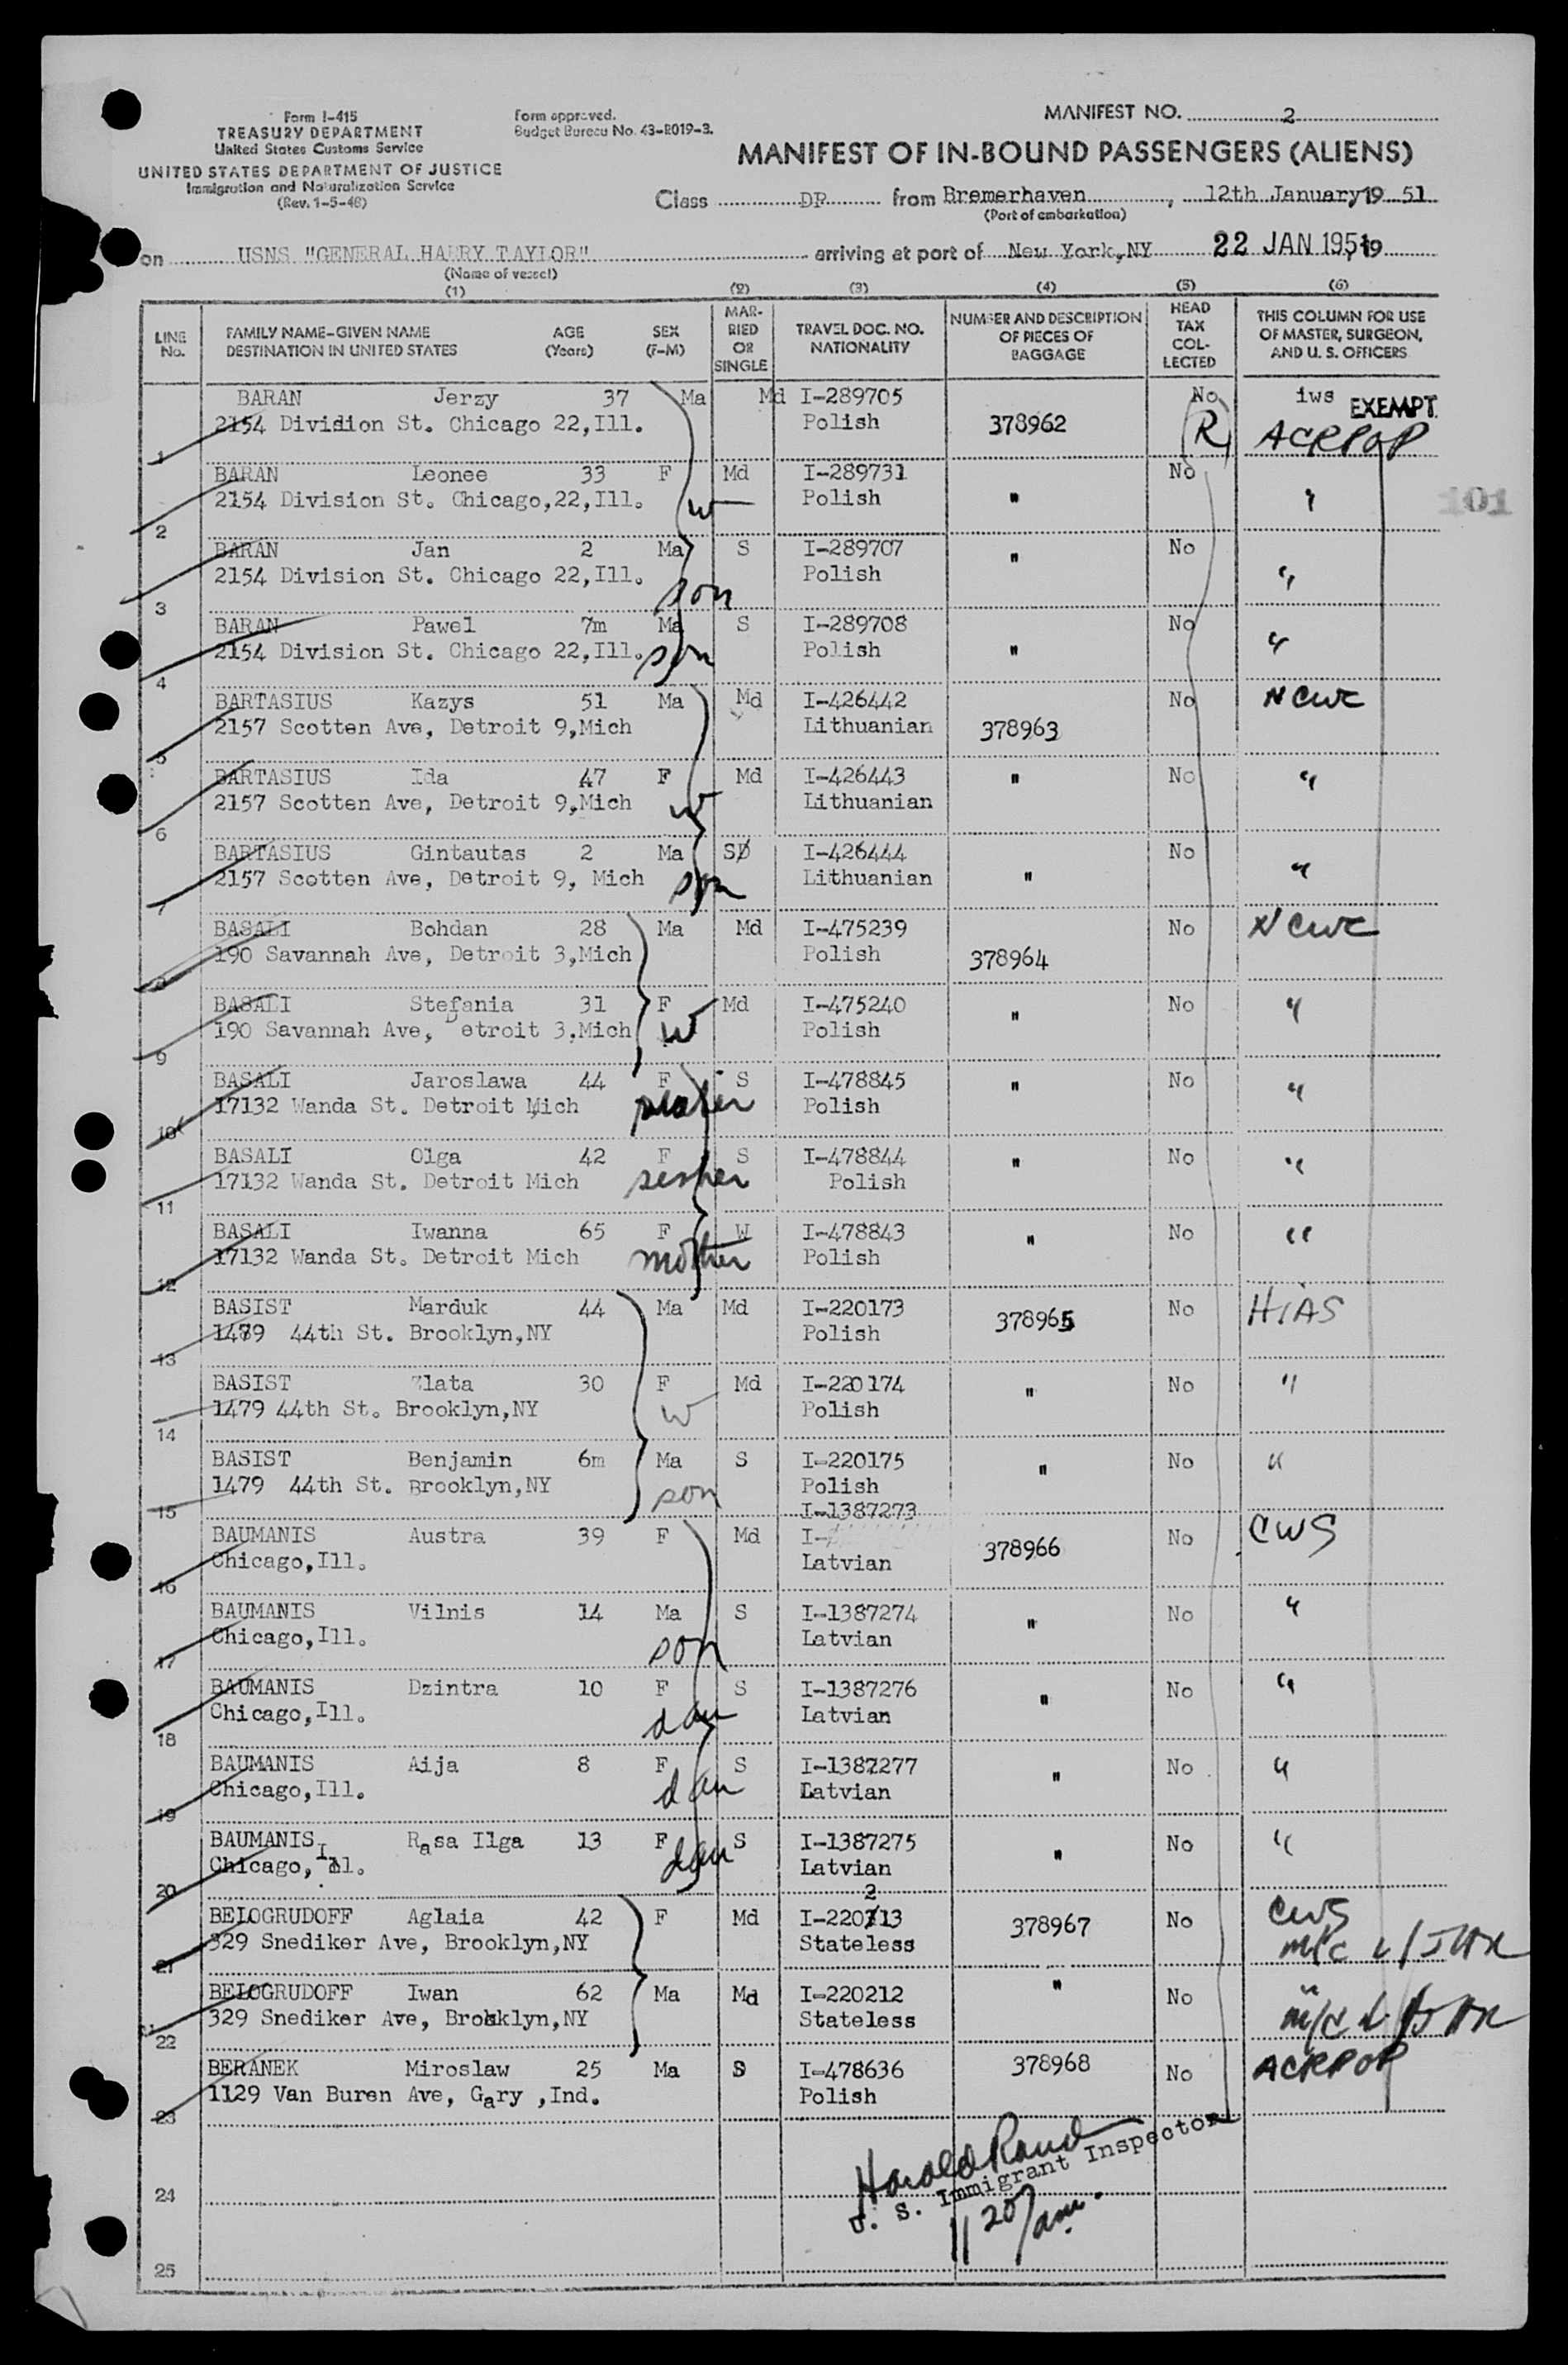 Form I-415
TREASURY DEPARTMENT
United States Customs Service
UNITED STATES DEPARTMENT OF JUSTICE
Immigration and Naturalization Service
(Rev. 1-5-48)
Form approved.
Budget Bureau No. 43-R019-3.
MANIFEST NO. 2
MANIFEST OF IN-BOUND PASSENGERS (ALIENS)
Class DP from Bremerhaven, 12th January 19 51
(Port of embarkation)
on USNS "GENERAL HARRY TAYLOR" arriving at port of New York, NY 22 JAN 1951 19
(Name of vessel)
(1) (2) (3) (4) (5) (6)
LINE No. FAMILY NAME-GIVEN NAME DESTINATION IN UNITED STATES AGE (Years) SEX (F-M) MARRIED OR SINGLE TRAVEL DOC. NO. NATIONALITY NUMBER AND DESCRIPTION OF PIECES OF BAGGAGE HEAD TAX COLLECTED THIS COLUMN FOR USE OF MASTER, SURGEON, AND U. S. OFFICERS
BARAN Jerzy 37 Ma Md I-289705 No iws EXEMPT
1 2154 Division St. Chicago 22,Ill. Polish 378962 (R) ACRPOP
BARAN Leonee 33 F Md I-289731 No
2 2154 Division St. Chicago,22,Ill. w Polish " "
101
BARAN Jan 2 Ma S I-289707 " No
3 2154 Division St. Chicago 22,Ill. son Polish "
BARAN Pawel 7m Ma S I-289708 No
4 2154 Division St. Chicago 22,Ill. son Polish " "
BARTASIUS Kazys 51 Ma Md I-426442 No NCWC
5 2157 Scotten Ave, Detroit 9,Mich Lithuanian 378963
BARTASIUS Ida 47 F Md I-426443 " No "
6 2157 Scotten Ave, Detroit 9,Mich w Lithuanian
BARTASIUS Gintautas 2 Ma SD I-426444 No
7 2157 Scotten Ave, Detroit 9, Mich son Lithuanian " "
BASALI Bohdan 28 Ma Md I-475239 No NCWC
8 190 Savannah Ave, Detroit 3,Mich Polish 378964
BASALI Stefania 31 F Md I-475240 No "
9 190 Savannah Ave, Detroit 3.Mich w Polish "
BASALI Jaroslawa 44 F S I-478845 " No
10 17132 Wanda St. Detroit Mich Polish "
BASALI Olga 42 F S I-478844 " No "
11 17132 Wanda St. Detroit Mich Polish
BASALI Iwanna 65 F W I-478843 " No "
12 17132 Wanda St. Detroit Mich mother Polish
BASIST Marduk 44 Ma Md I-220173 378965 No HIAS
13 1479 44th St. Brooklyn,NY Polish
BASIST Zlata 30 F Md I-220174 " No "
14 1479 44th St. Brooklyn,NY w Polish
BASIST Benjamin 6m Ma S I-220175 " No "
15 1479 44th St. Brooklyn,NY son Polish
I-1387273
BAUMANIS Austra 39 F Md I- 378966 No CWS
16 Chicago,Ill. Latvian
BAUMANIS Vilnis 14 Ma S I-1387274 " No "
17 Chicago,Ill. son Latvian
BAUMANIS Dzintra 10 F S I-1387276 " No "
18 Chicago,Ill. dau Latvian
BAUMANIS Aija 8 F S I-1387277 " No "
19 Chicago,Ill. dau Latvian
BAUMANIS Rasa Ilga 13 F S I-1387275 " No "
20 Chicago, Ill. dau Latvian
2
BELOGRUDOFF Aglaia 42 F Md I-220713 378967 No CWS
21 329 Snediker Ave, Brooklyn,NY Stateless
BELOGRUDOFF Iwan 62 Ma Md I-220212 " No "
22 329 Snediker Ave, Brooklyn,NY Stateless
BERANEK Miroslaw 25 Ma S I-478636 378968 No ACRPOP
23 1129 Van Buren Ave, Gary ,Ind. Polish
Harold Rand
U. S. Immigrant Inspector
24
11 20/am.
25